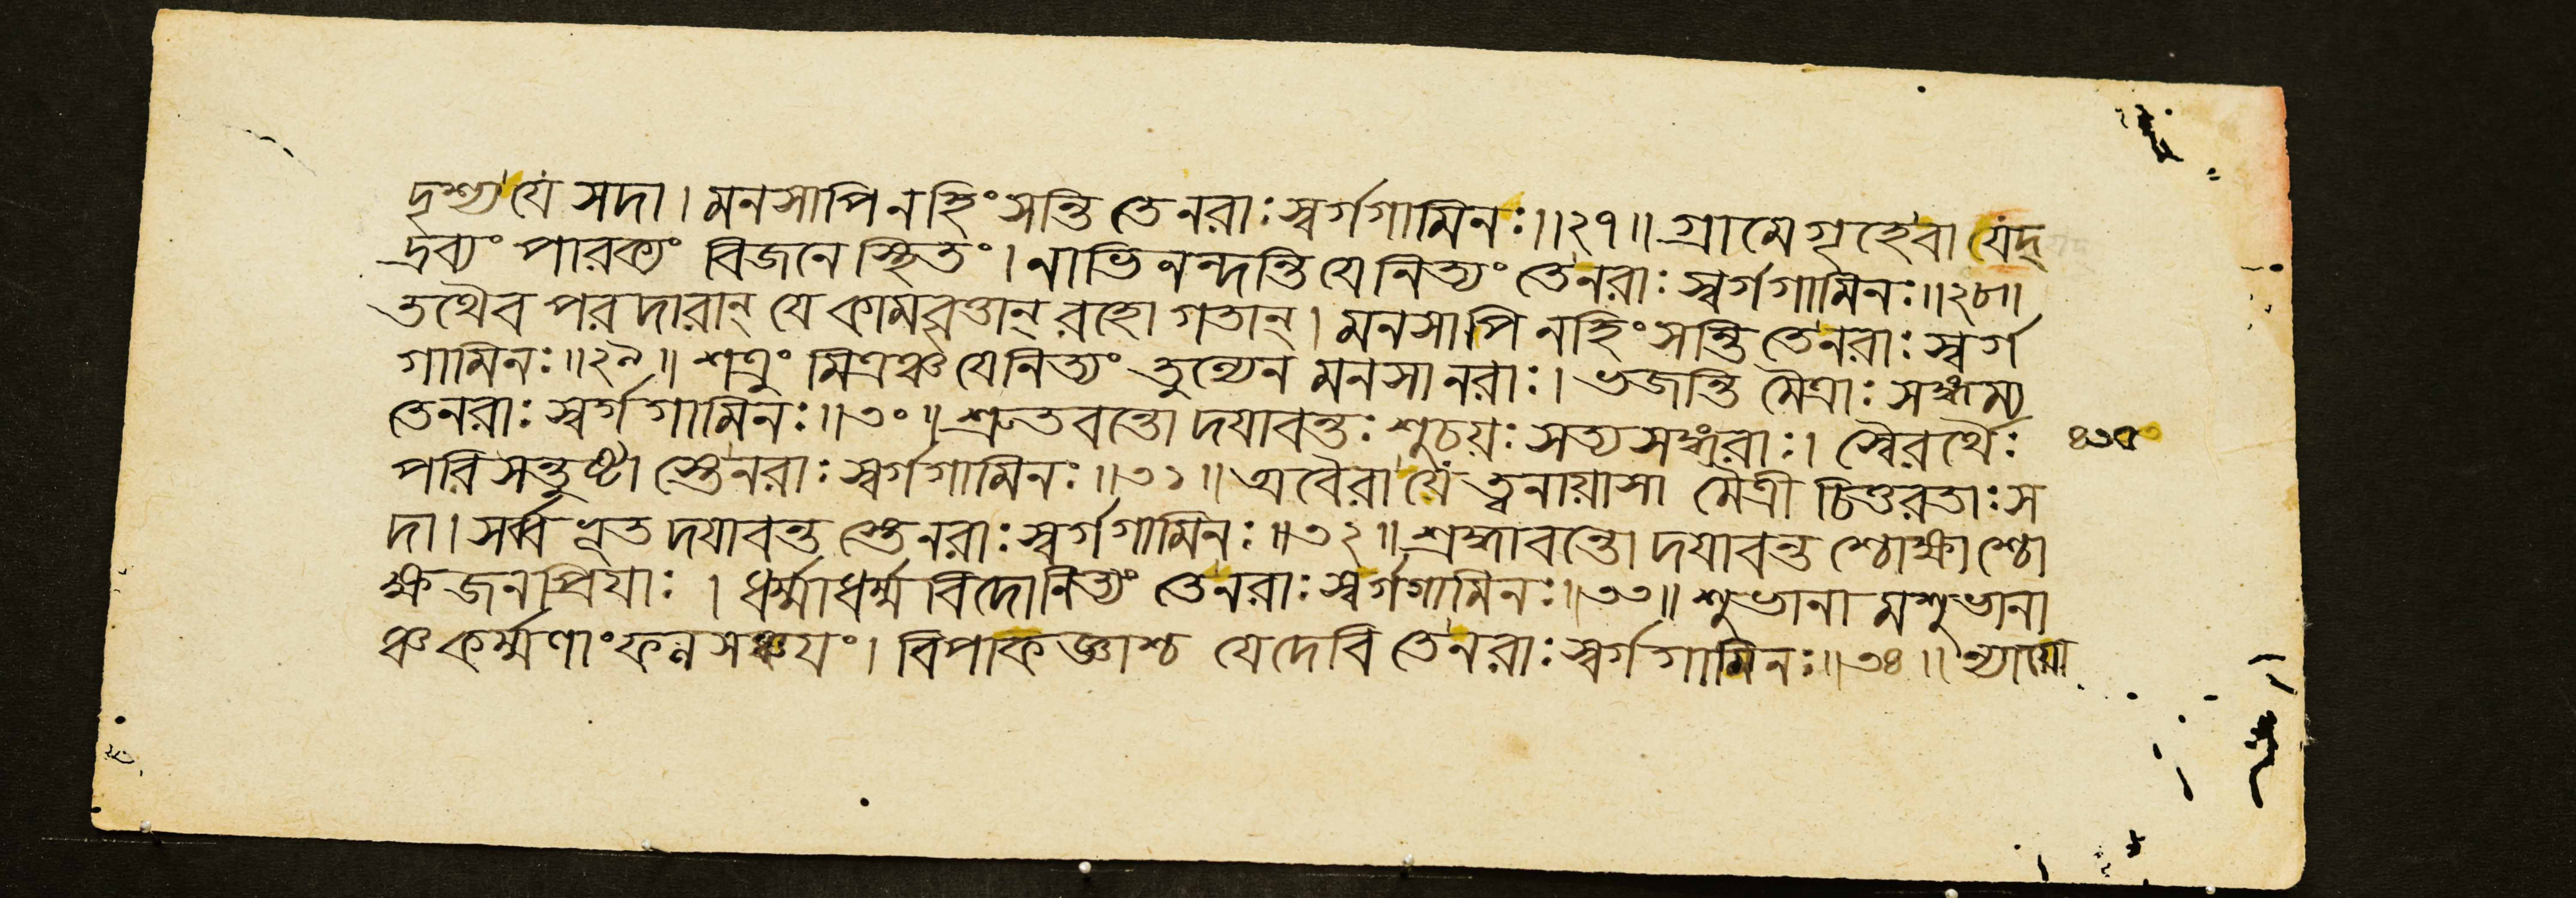 দৃশ্য যে সদা। মনসাপি ন হিংসন্তি তে নরাঃ স্বর্গগামিনঃ॥২৭॥ গ্রামে গৃহে বা যেদ্
দ্রব্যং পারক্যং বিজনে স্থিতং। নাভিনন্দন্তি যে নিত্যং তে নরাঃ স্বর্গগামিনঃ॥২৮॥
তথৈব পরদারান্ যে কামবৃত্তান্ রহোগতান্। মনসাপি ন হিংসন্তি তে নরাঃ স্বর্গ
গামিনঃ॥২৯॥ শত্রুং মিত্রঞ্চ যে নিত্যং তুল্যেন মনসা নরাঃ। ভজন্তি মৈত্রাঃ সঙ্গম্য
তে নরাঃ স্বর্গগামিনঃ॥৩০॥ শ্রুতবন্তো দয়াবন্তঃ শুচয়ঃ সত্যসঙ্গরাঃ। স্বৈরর্থৈঃ ৪৩৫
পরিসন্তুষ্টা স্তে নরাঃ স্বর্গগামিনঃ॥৩১॥ অবৈরা যে ত্বনায়াসা মৈত্রী চিত্তরতাঃ স
দা। সর্ব্বভূত দয়াবন্ত স্তে নরাঃ স্বর্গগামিনঃ॥৩২॥ শ্রদ্ধাবন্তো দয়াবন্ত শ্চোক্ষা শ্চো
ক্ষ জনপ্রিয়াঃ। ধর্ম্মাধর্ম্ম বিদো নিত্যং তে নরাঃ স্বর্গগামিনঃ॥৩৩॥ শুভানা মশুভানা
ঞ্চ কর্ম্মণাং ফল সঞ্চয়ং। বিপাকজ্ঞাশ্চ যে দেবি তে নরাঃ স্বর্গগামিনঃ॥৩৪॥ ন্যায়ো